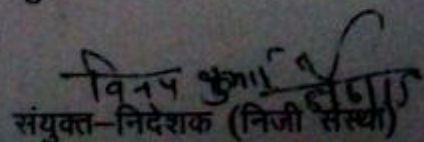 विनय कुमार
संयुक्त-निदेशक (निजी संस्था)